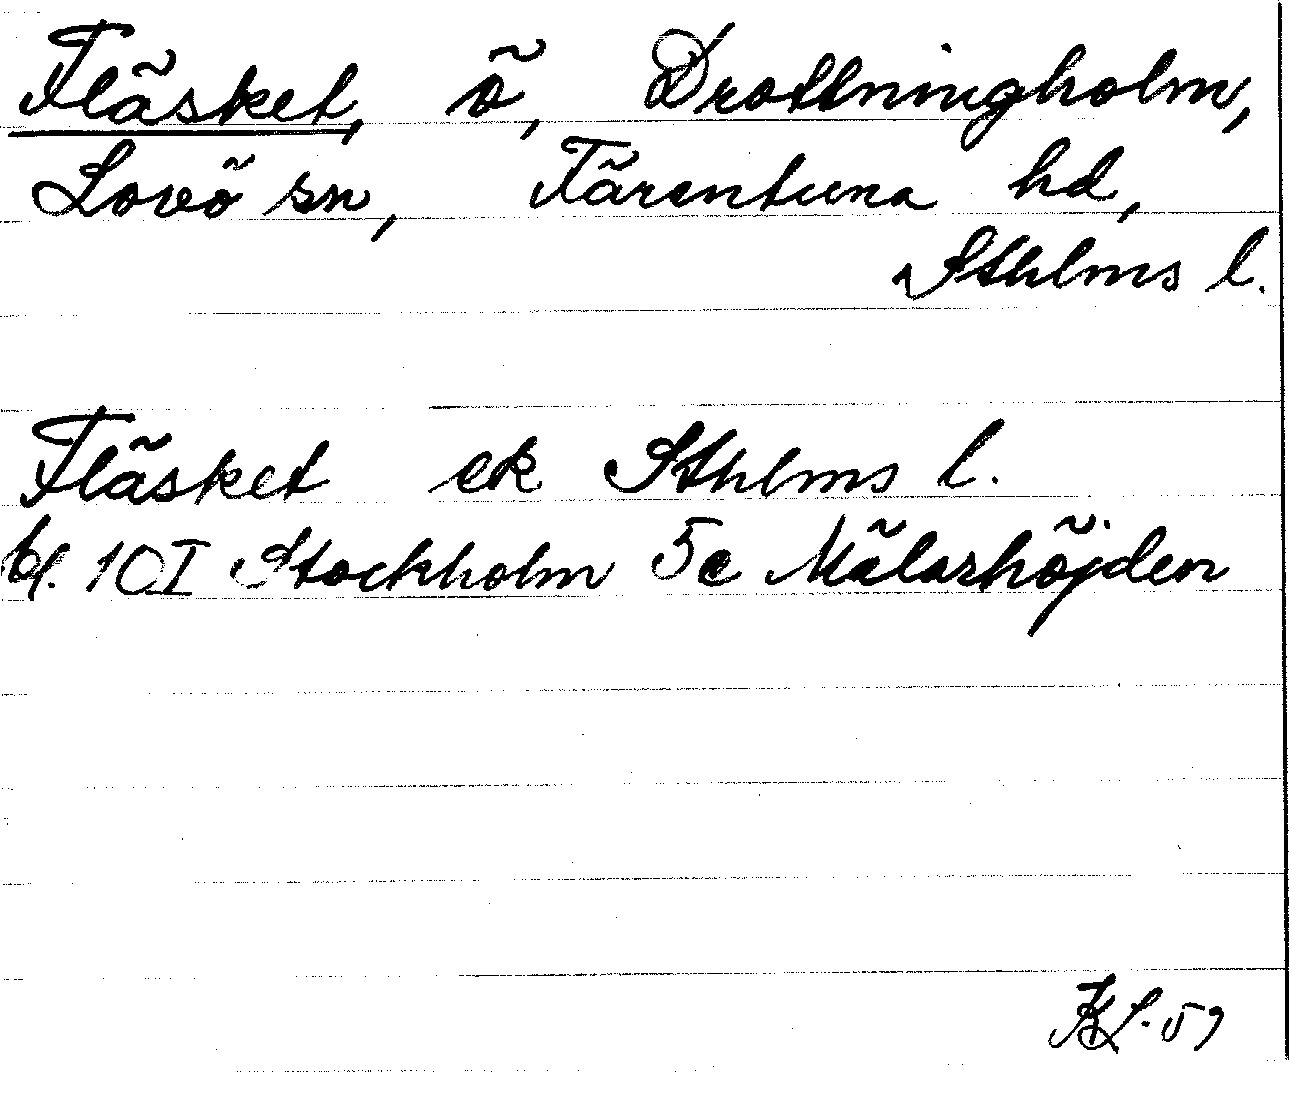 Fläsket, ö, Drottningholm,
Lovö sn, Färentuna hd,
Sthlms l.
Fläsket ek Sthlms l.
bl. 10 I Stockholm 5c Mälarhöjden